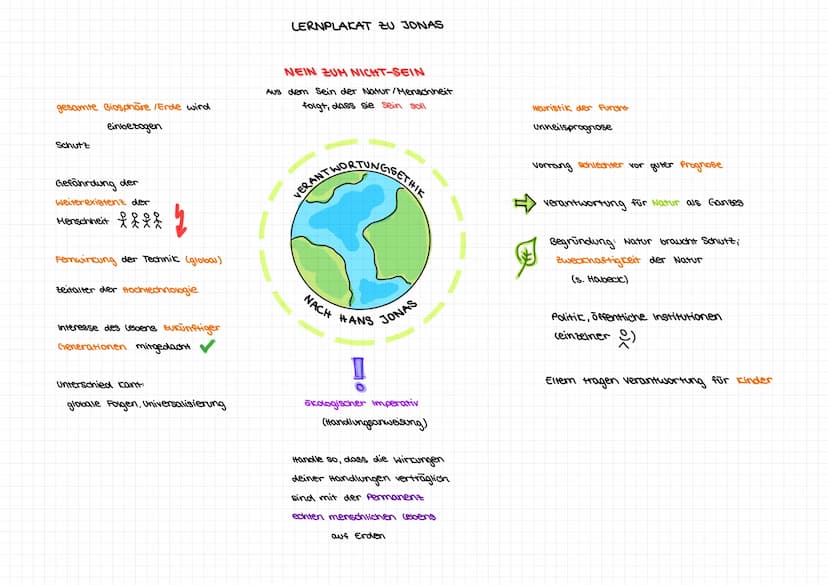 LERNPLAKAT ZU JONAS
NEIN ZUM NICHT-SEIN
Aus dem Sein der Natur/Menschheit
folgt, dass sie Sein soll
gesamte Biosphäre/Erde wird
einbezogen
Schutz
Gefährdung der
Weiterexistenz der
Menschheit
Fernwirkung der Technik (global)
Zeitalter der Hochtechnologie
Interesse des Lebens zukünftiger
Generationen mitgedacht
Unterschied Kant:
globale Folgen, Universalisierung
VERANTWORTUNGSETHIK
NACH HANS JONAS
!
ökologischer Imperativ
(Handlungsanweisung)
Handle so, dass die Wirkungen
deiner Handlungen verträglich
sind mit der Permanenz
echten menschlichen Lebens
auf Erden
Heuristik der Furcht
Unheilsprognose
Vorrang schlechter vor guter Prognose
Verantwortung für Natur als Ganzes
Begründung: Natur braucht Schutz;
Zweckhaftigkeit der Natur
(s. Habeck)
Politik, öffentliche Institutionen
(einzelner)
Eltern tragen Verantwortung für Kinder